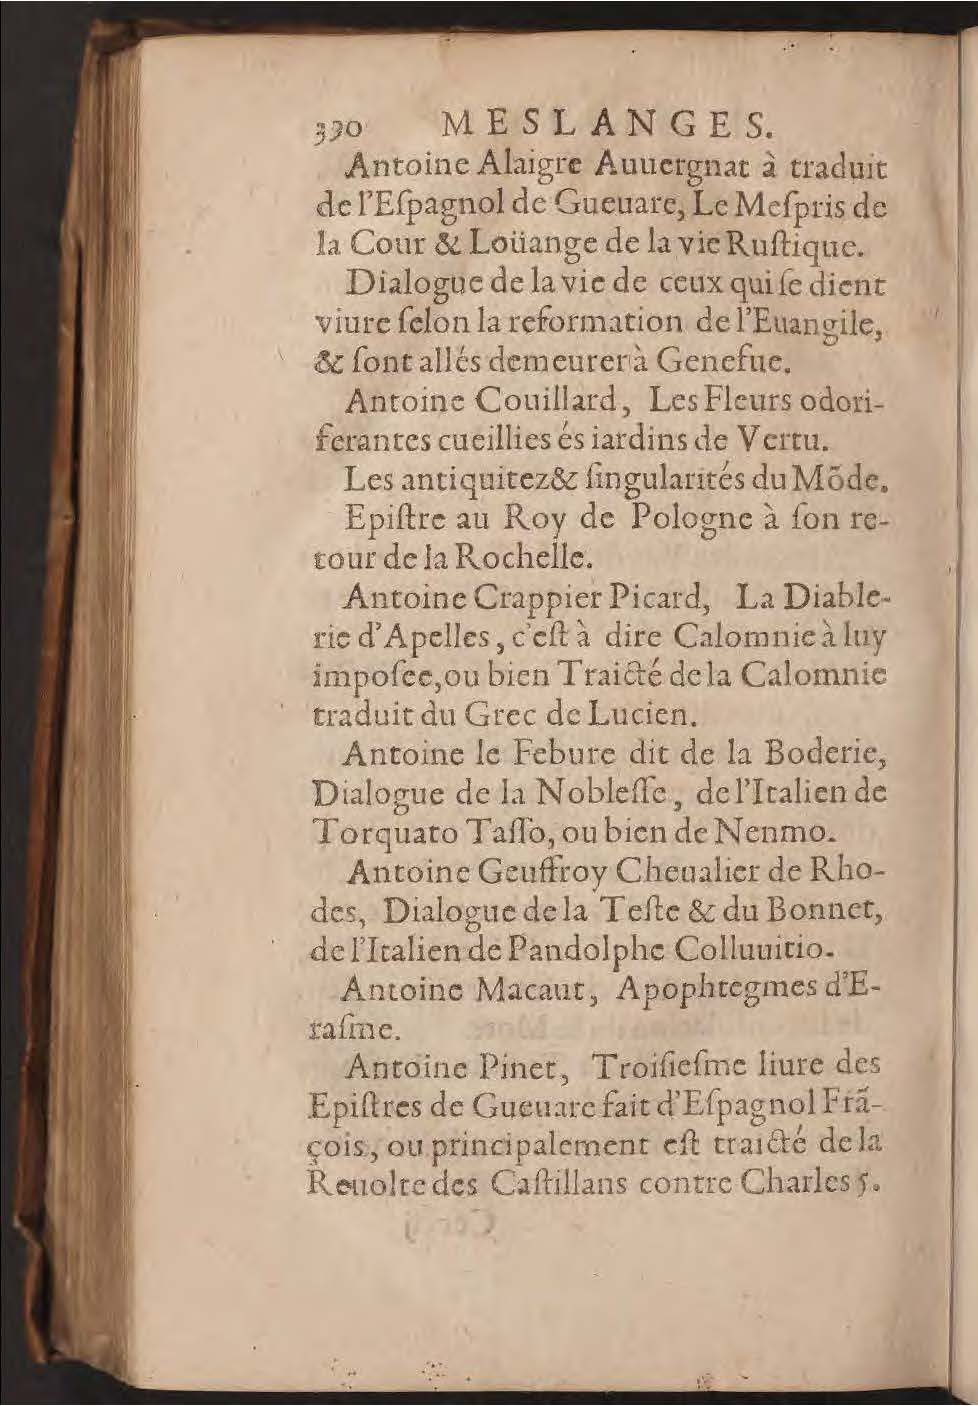 390 MESLANGES.
Antoine Alaigre Auuergnat à traduit
de l'Eſpagnol de Gueuare, Le Meſpris de
la Cour & Loüange de la vie Ruſtique.
Dialogue de la vie de ceux qui ſe dient
viure ſelon la reformation de l'Euangile,
& ſont allés demeurer à Geneſue.
Antoine Couillard, Les Fleurs odori-
ferantes cueillies és iardins de Vertu.
Les antiquitez & ſingularités du Mõde.
Epiſtre au Roy de Pologne à ſon re-
tour de la Rochelle.
Antoine Crappier Picard, La Diable-
rie d'Apelles, c'eſt à dire Calomnie à luy
impoſee, ou bien Traicté de la Calomnie
traduit du Grec de Lucien.
Antoine le Febure dit de la Boderie,
Dialogue de la Nobleſſe, de l'Italien de
Torquato Taſſo, ou bien de Nenmo.
Antoine Geuffroy Cheualier de Rho-
des, Dialogue de la Teſte & du Bonnet,
de l'Italien de Pandolphe Colluuitio.
Antoine Macaut, Apophtegmes d'E-
raſme.
Antoine Pinet, Troiſieſme liure des
Epiſtres de Gueuare fait d'Eſpagnol Frã-
çois, ou principalement eſt traicté de la
Reuolte des Caſtillans contre Charles 5.